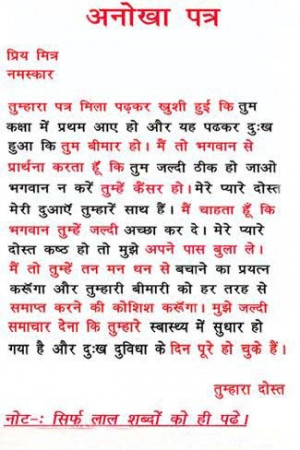 अनोखा पत्र
प्रिय मित्र
नमस्कार
तुम्हारा पत्र मिला पढ़कर खुशी हुई कि तुम
कक्षा में प्रथम आए हो और यह पढकर दुःख
हुआ कि तुम बीमार हो। मैं तो भगवान से
प्रार्थना करता हूँ कि तुम जल्दी ठीक हो जाओ
भगवान न करें तुम्हें कैंसर हो। मेरे प्यारे दोस्त
मेरी दुआऐं तुम्हारें साथ हैं। मैं चाहता हूँ कि
भगवान तुम्हें जल्दी अच्छा कर दे। मेरे प्यारे
दोस्त कष्ठ हो तो मुझे अपने पास बुला ले।
मैं तो तुम्हें तन मन धन से बचाने का प्रयत्न
करूँगा और तुम्हारी बीमारी को हर तरह से
समाप्त करने की कोशिश करूँगा। मुझे जल्दी
समाचार देना कि तुम्हारे स्वास्थ्य में सुधार हो
गया है और दुःख दुविधा के दिन पूरे हो चुके हैं।
तुम्हारा दोस्त
नोट-: सिर्फ लाल शब्दों को ही पढे।